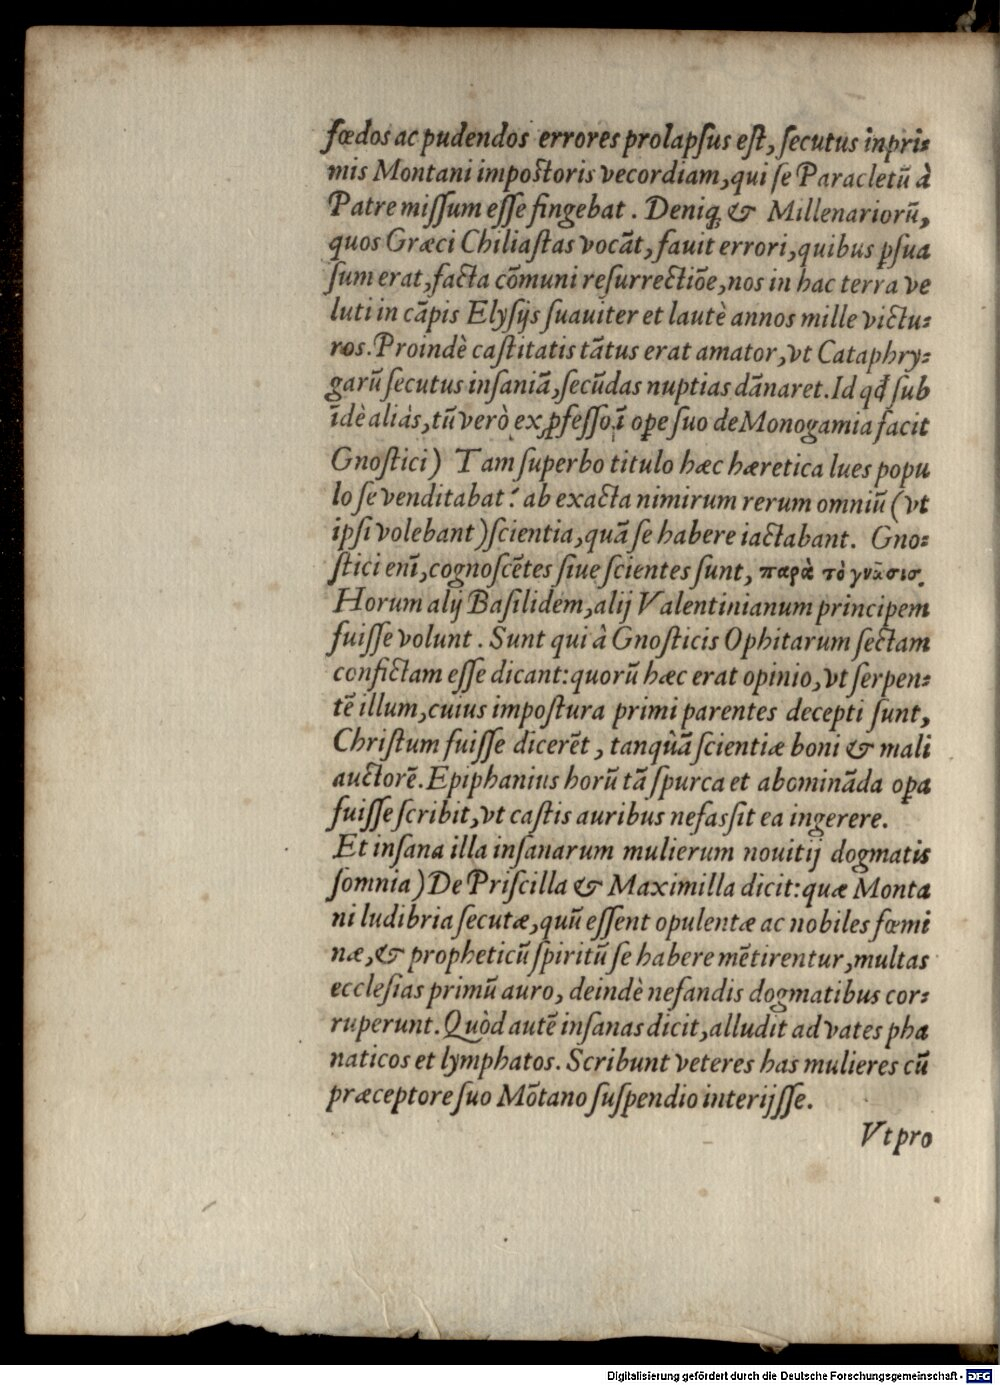 fœdos ac pudendos errores prolapſus eſt, ſecutus inpri⸗
mis Montani impostoris vecordiam, qui ſe Paracletū à
Patre miſſum eſſe fingebat. Deniq; & Millenariorū,
quos Græci Chiliaſtas vocāt, fauit errori, quibus ꝑſua
ſum erat, facta cōmuni reſurrectiōe, nos in hac terra ve
luti in cāpis Elyſijs ſuauiter et lautè annos mille victu⸗
ros. Proindè caſtitatis tātus erat amator, vt Cataphry⸗
garū ſecutus inſaniā, ſecūdas nuptias dānaret. Id qđ ſub
īdè aliàs, tū verò ex ꝓfeſſo ī oꝑe ſuo de Monogamia facit
Gnoſtici) Tam ſuperbo titulo hæc hæretica lues popu
lo ſe venditabat: ab exacta nimirum rerum omniū (vt
ipſi volebant) ſcientia, quā ſe habere iactabant. Gno⸗
ſtici enī, cognoſcētes ſiue ſcientes ſunt, παρὰ τὸ γνῶσις.
Horum alij Baſilidem, alij Valentinianum principem
fuiſſe volunt. Sunt qui à Gnoſticis Ophitarum ſectam
confictam eſſe dicant: quorū hæc erat opinio, vt ſerpen⸗
tē illum, cuius impoſtura primi parentes decepti ſunt,
Chriſtum fuiſſe dicerēt, tanquā ſcientiæ boni & mali
auctorē. Epiphanius horū tā ſpurca et abomināda oꝑa
fuiſſe ſcribit, vt caſtis auribus nefas ſit ea ingerere.
Et inſana illa inſanarum mulierum nouitij dogmatis
ſomnia) De Priſcilla & Maximilla dicit: quæ Monta
ni ludibria ſecutæ, quū eſſent opulentæ ac nobiles fœmi
næ, & propheticū ſpiritū ſe habere mētirentur, multas
eccleſias primū auro, deindè nefandis dogmatibus cor⸗
ruperunt. Quòd autē inſanas dicit, alludit ad vates pha
naticos et lymphatos. Scribunt veteres has mulieres cū
præceptore ſuo Mōtano ſuſpendio interijſſe.
Vt pro
Digitalisierung gefördert durch die Deutsche Forschungsgemeinschaft - DFG